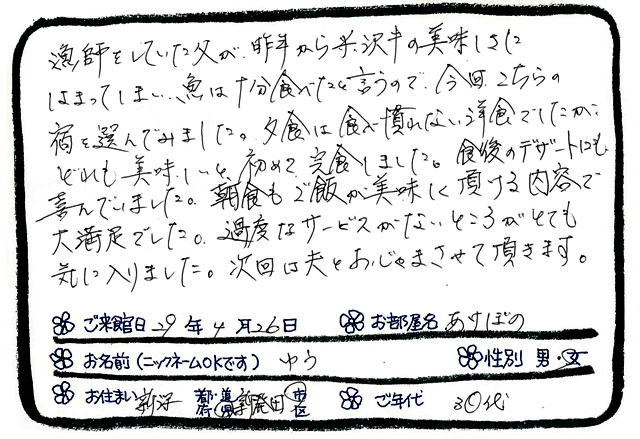 漁師をしていた父が、昨年から米沢牛の美味しさに
はまってしまい、魚は十分食べたと言うので、今回こちらの
宿を選んでみました。夕食は食べ慣れない洋食でしたが、
どれも美味しいと、初めて完食しました。食後のデザートにも
喜んでいました。朝食もご飯が美味しく頂ける内容で
大満足でした。過度なサービスがないところがとても
気に入りました。次回は夫とおじゃまさせて頂きます。
ご来館日 29年4月26日 お部屋名 あけぼの
お名前(ニックネームOKです) ゆう 性別 男・女
お住まい 新潟 都・道・府・県 新発田 市・区 ご年代 30代